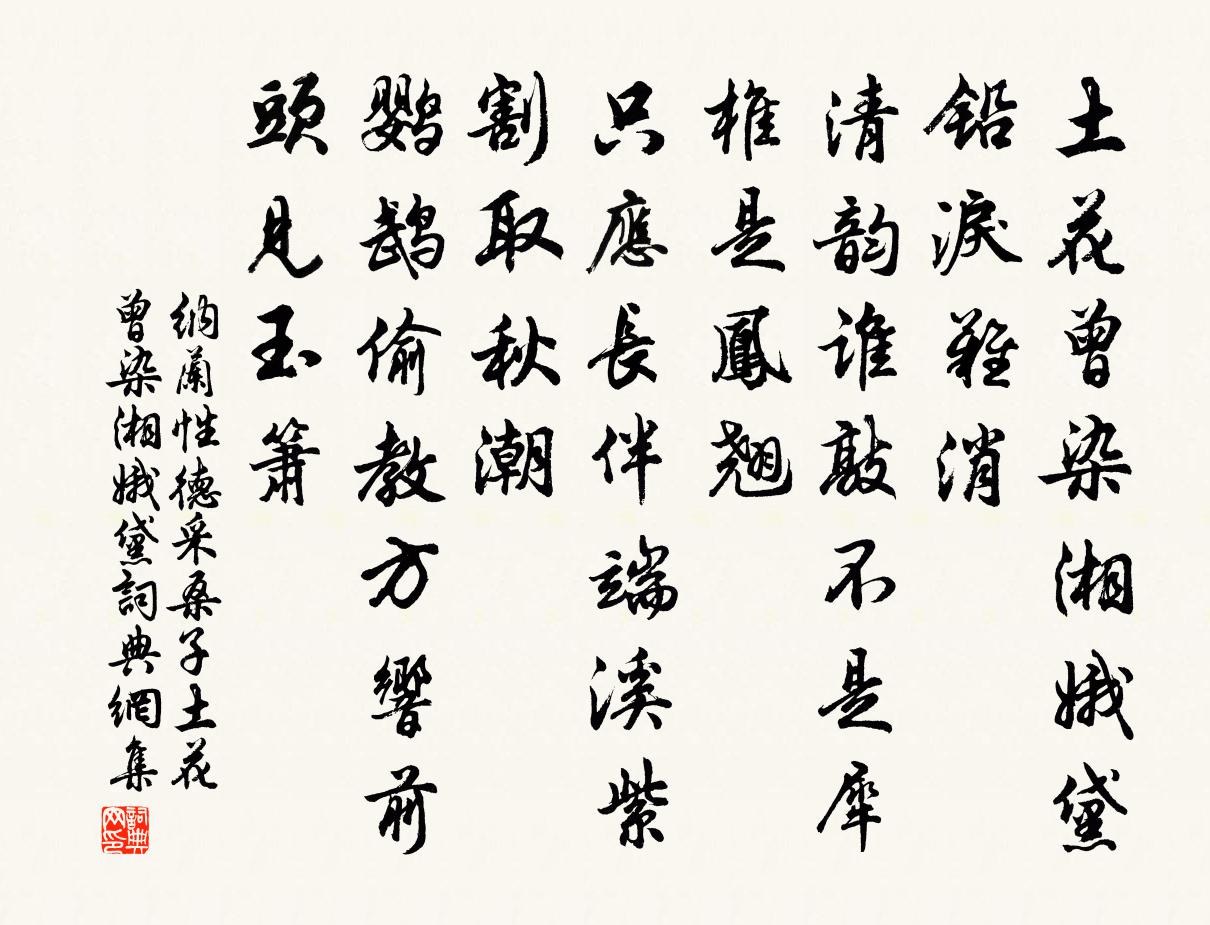 土花曾染湘娥黛
鉛淚難消
清韵誰敲不是犀
椎是鳳翹
只應長伴端溪紫
割取秋潮
鸚鵡偷教方響前
頭見玉簫
納蘭性德采桑子土花
曾染湘娥黛詞典網集
詞典
网印